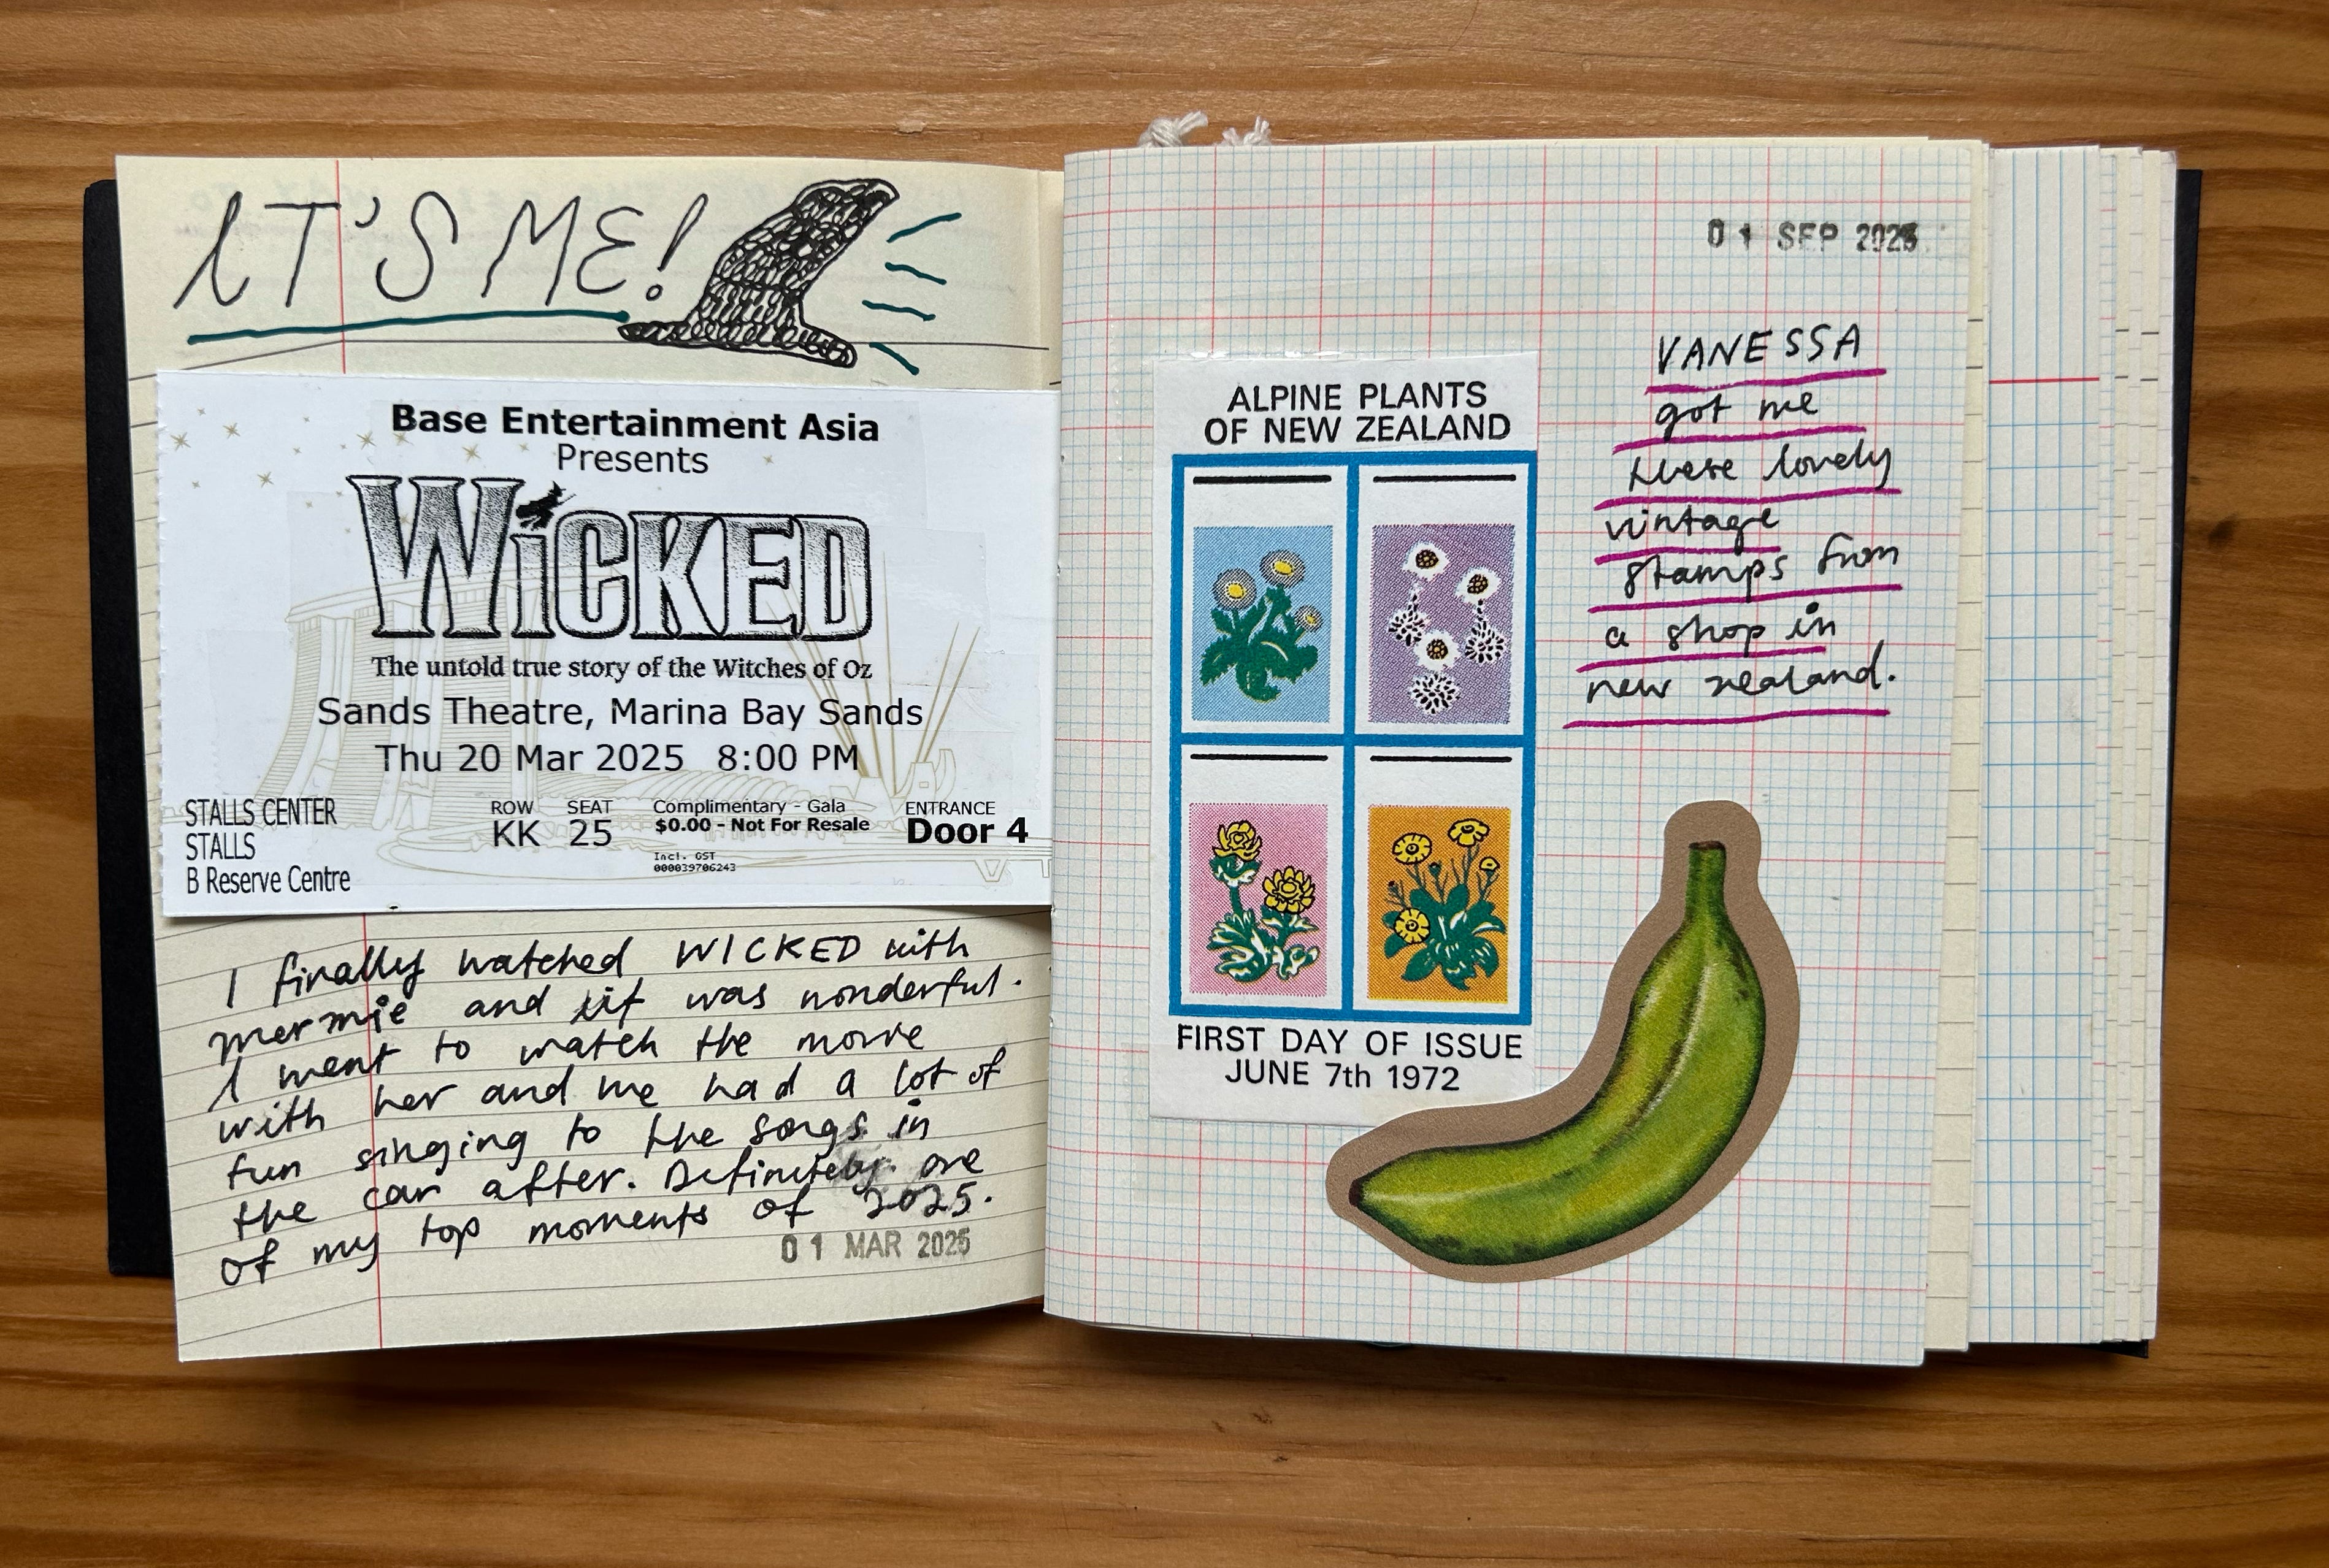 IT'S ME!
Base Entertainment Asia
Presents
WiCKED
The untold true story of the Witches of Oz
Sands Theatre, Marina Bay Sands
Thu 20 Mar 2025 8:00 PM
STALLS CENTER
STALLS
B Reserve Centre
ROW
KK
SEAT
25
Complimentary - Gala
$0.00 - Not For Resale
Incl. GST
000039706243
ENTRANCE
Door 4
I finally watched WICKED with
mermie and it was wonderful.
I went to watch the movie
with her and we had a lot of
fun singing to the songs in
the car after. Definitely one
of my top moments of 2025.
01 MAR 2025
01 SEP 2025
VANESSA
got me
these lovely
vintage
stamps from
a shop in
new zealand.
ALPINE PLANTS
OF NEW ZEALAND
FIRST DAY OF ISSUE
JUNE 7th 1972